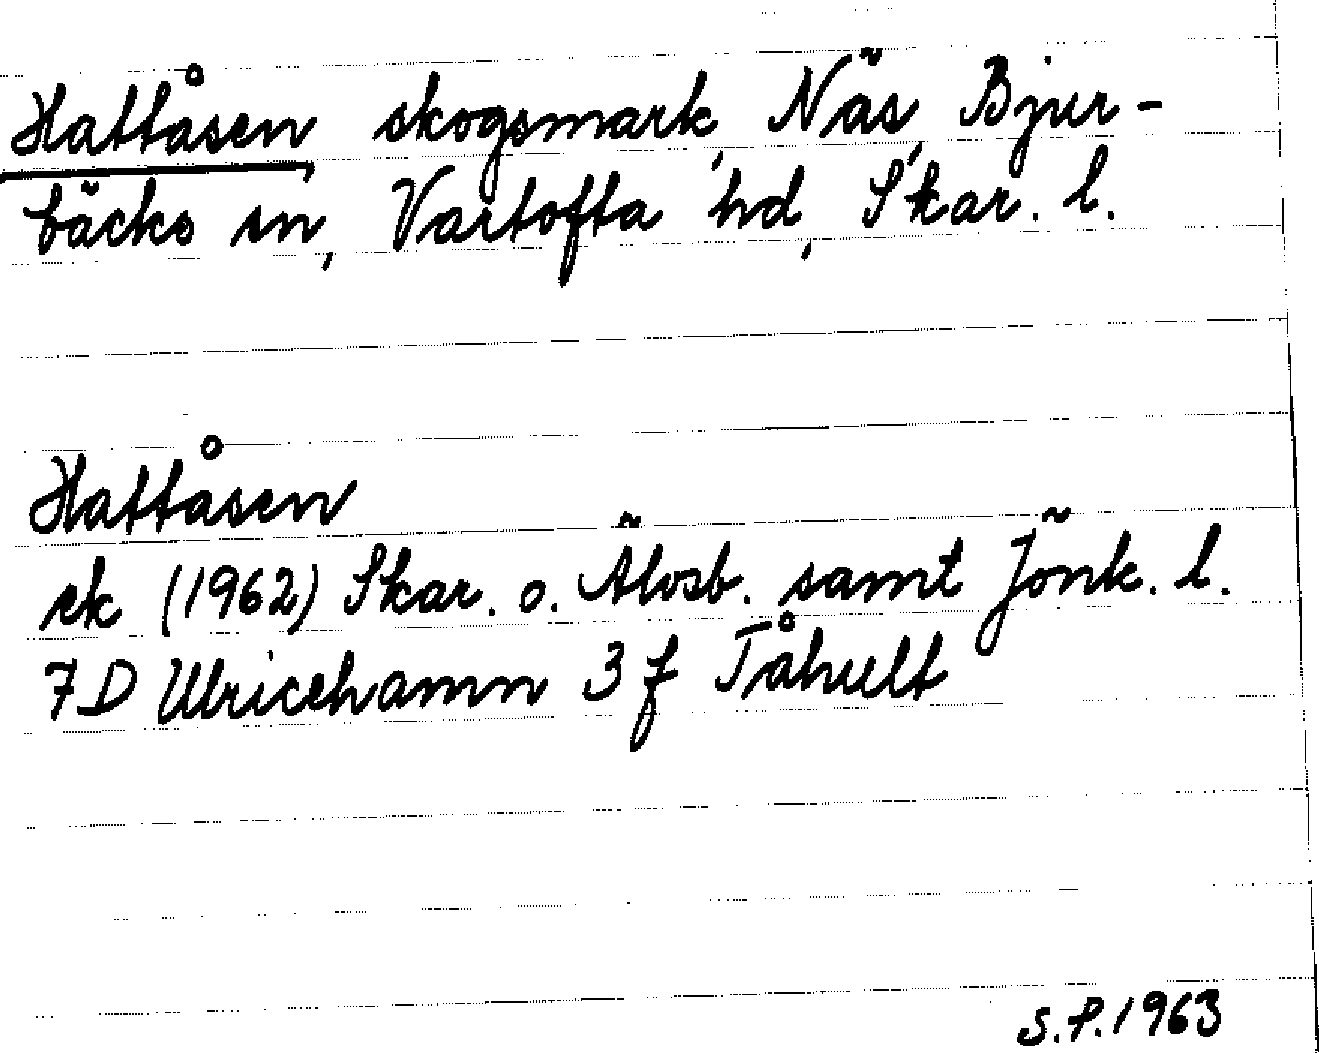 Hattåsen skogsmark, Näs, Bjur-
bäcks sn, Vartofta hd, Skar. l.
Hattåsen
ek (1962) Skar. o. Älvsb. samt Jönk. l.
7D Ulricehamn 3 f Tåhult
S.P. 1963